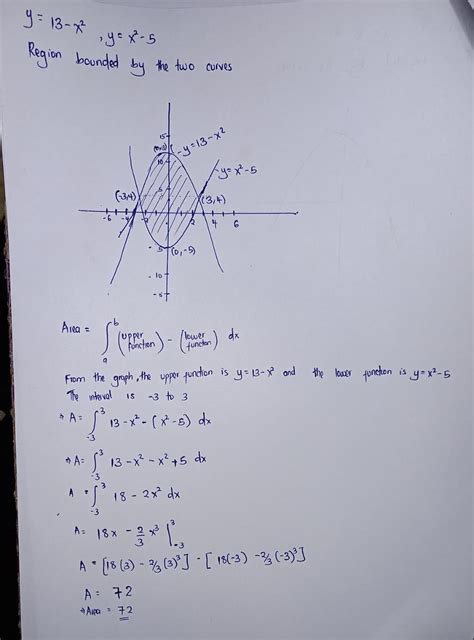 y = 13 - x² , y = x² - 5
Region bounded by the two curves
15
10
y = 13 - x²
y = x² - 5
(-3,4)
5
(3,4)
-6 -4 -2 2 4 6
-5
(0,-5)
-10
Area = ∫ₐᵇ (upper function) - (lower function) dx
From the graph, the upper function is y = 13 - x² and the lower function is y = x² - 5
The interval is -3 to 3
⇒ A = ∫₋₃³ 13 - x² - (x² - 5) dx
⇒ A = ∫₋₃³ 13 - x² - x² + 5 dx
A = ∫₋₃³ 18 - 2x² dx
A = 18x - 2/3 x³ |₋₃³
A = [18(3) - 2/3(3)³] - [18(-3) - 2/3(-3)³]
A = 72
⇒ Area = 72